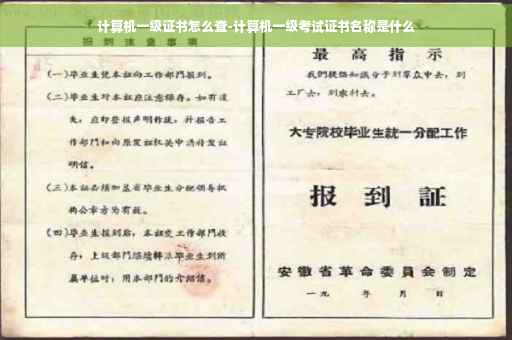 计算机一级证书怎么查-计算机一级考试证书名称是什么
报到注意事项
(一)毕业生凭本证向工作部门报到。
(二)毕业生对本证应注意保存。如有遗
失,应即登报声明作废,并报告工
作部门和向原发证机关申请补发证
明信。
(三)本证必须加盖省毕业生分配领导机
构公章方为有效。
(四)毕业生报到后,本证交工作部门收
存,上级部门
属单位时,用本部门的介绍信。
最高指示
我们提倡知识分子到群众中去,到
工厂去,到农村去。
大专院校毕业生統一分配工作
报到証
安徽省革命委員会制定
一九 年 月 日